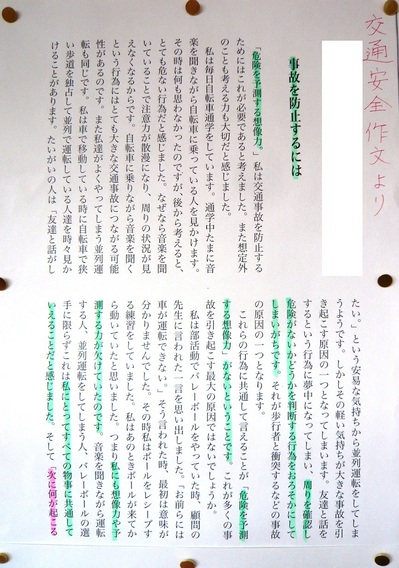 交通安全作文より
事故を防止するには
「危険を予測する想像力。」私は交通事故を防止する
ためにはこれが必要であると考えました。また想定外
のことも考える力も大切だと感じました。
私は毎日自転車通学をしています。通学中たまに音
楽を聞きながら自転車に乗っている人を見かけます。
その時は何も思わなかったのですが、後から考えると、
とても危ない行為だと感じました。なぜなら音楽を聞
いていることで注意力が散漫になり、周りの状況が見
えなくなるからです。自転車に乗りながら音楽を聞く
という行為にはとても大きな交通事故につながる可能
性があるのです。また私達がよくやってしまう並列運
転も同じです。私は車で移動している時に自転車で狭
い歩道を独占して並列で運転している人達を時々見か
けることがあります。たいがいの人は、「友達と話がし
たい。」という安易な気持ちから並列運転をしてしま
うようです。しかしその軽い気持ちが大きな事故を引
き起こす原因の一つとなってしまいます。友達と話を
するという行為に夢中になってしまい、周りを確認し
危険がないかどうかを判断する行為をおろそかにして
しまいがちです。それが歩行者と衝突するなどの事故
の原因の一つとなります。
これらの行為に共通して言えることが「危険を予測
する想像力」がないということです。これが多くの事
故を引き起こす最大の原因ではないでしょうか。
私は部活動でバレーボールをやっていた時、顧問の
先生に言われた一言を思い出しました。『お前らには
車が運転できない』そう言われた時、最初は意味が
分かりませんでした。その時私はボールをレシーブす
る練習をしていました。私はあのときボールが来てか
ら動いていたと思いました。つまり私にも想像力や予
測する力が欠けていたのです。音楽を聞きながら運転
する人、並列運転をしてしまう人、バレーボールの選
手に限らずこれは私にとってすべての物事に共通して
いえることだと感じました。そして「次に何が起こる